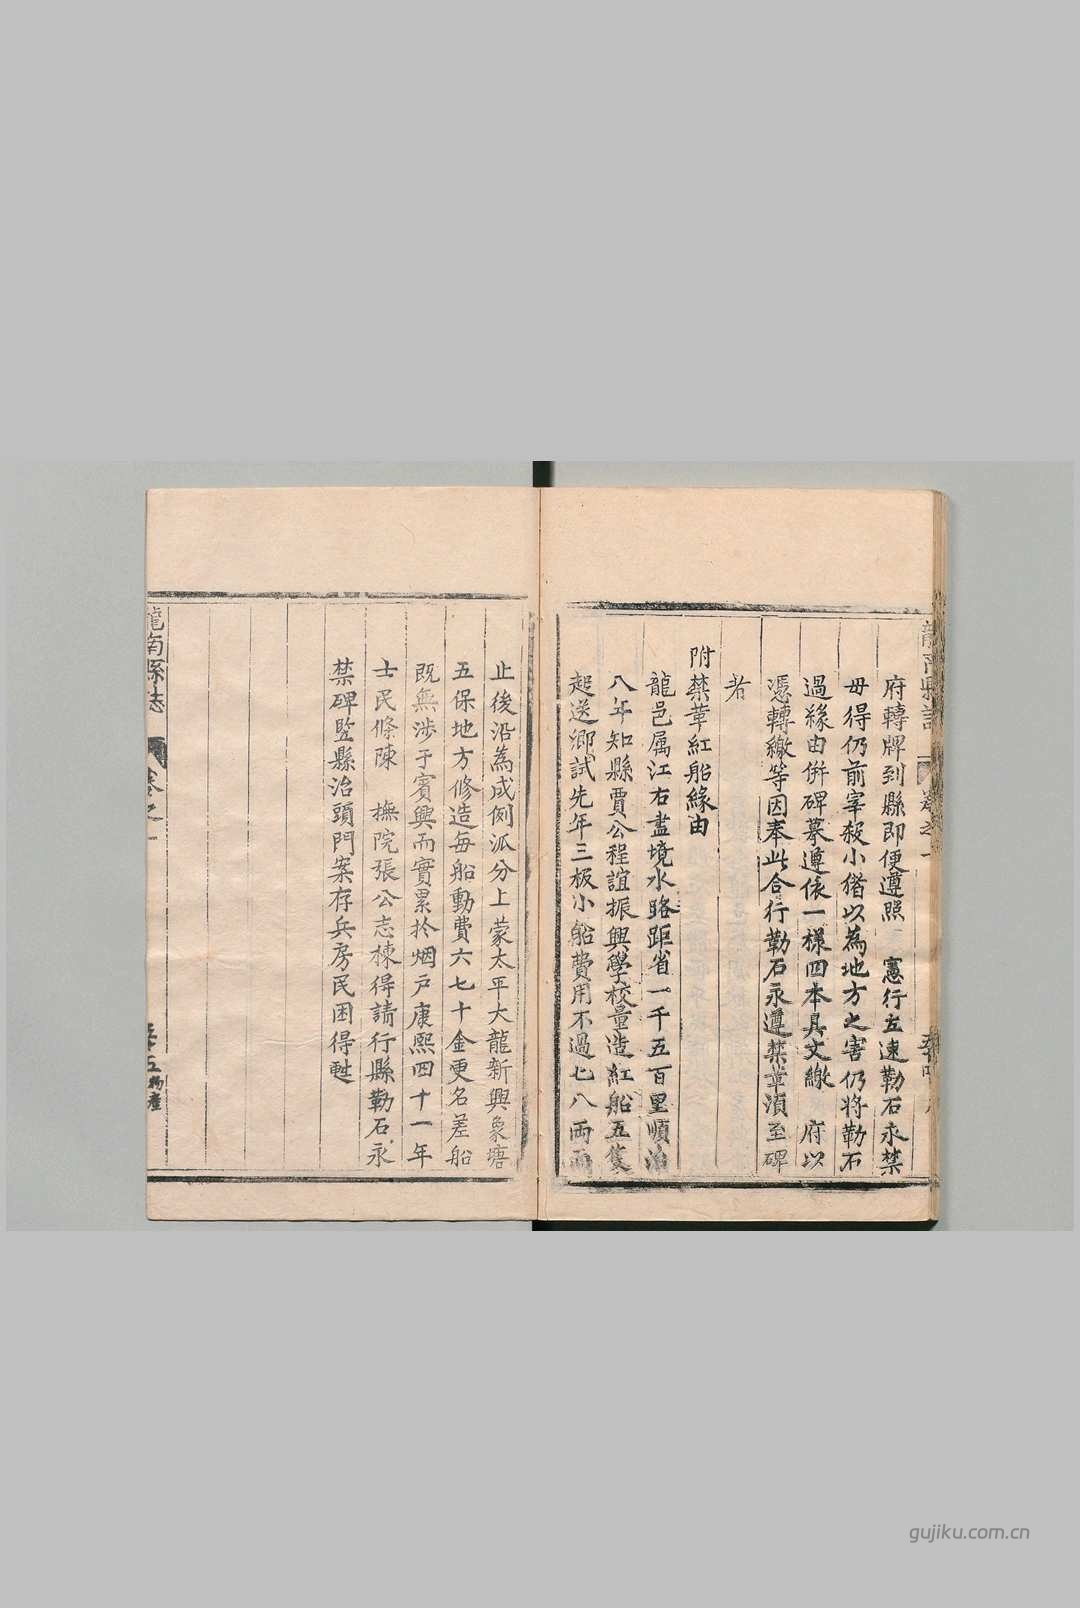 府轉牌到縣即便遵照 憲行立速勒石永禁
毋得仍前宰殺小猪以為地方之害仍將勒石
過緣由併碑摹遵依一樣四本具文繳 府以
憑轉繳等因奉此合行勒石永遵禁革須至碑
者
附禁革紅船緣由
龍邑属江右盡境水路距省一千五百里順治
八年知縣賈公程誼振興學校量造紅船五隻
起送鄉試先年三板小船費用不過七八両而
止後沿為成例派分上蒙太平大龍新興象塘
五保地方修造每船動費六七十金更名差船
既無涉于賓興而實累扵烟戸康熙四十一年
士民條陳 撫院張公志棟得請行縣勒石永
禁碑竪縣治頭門案存兵房民困得甦
龍南縣誌 卷之一 物產
gujiku.com.cn